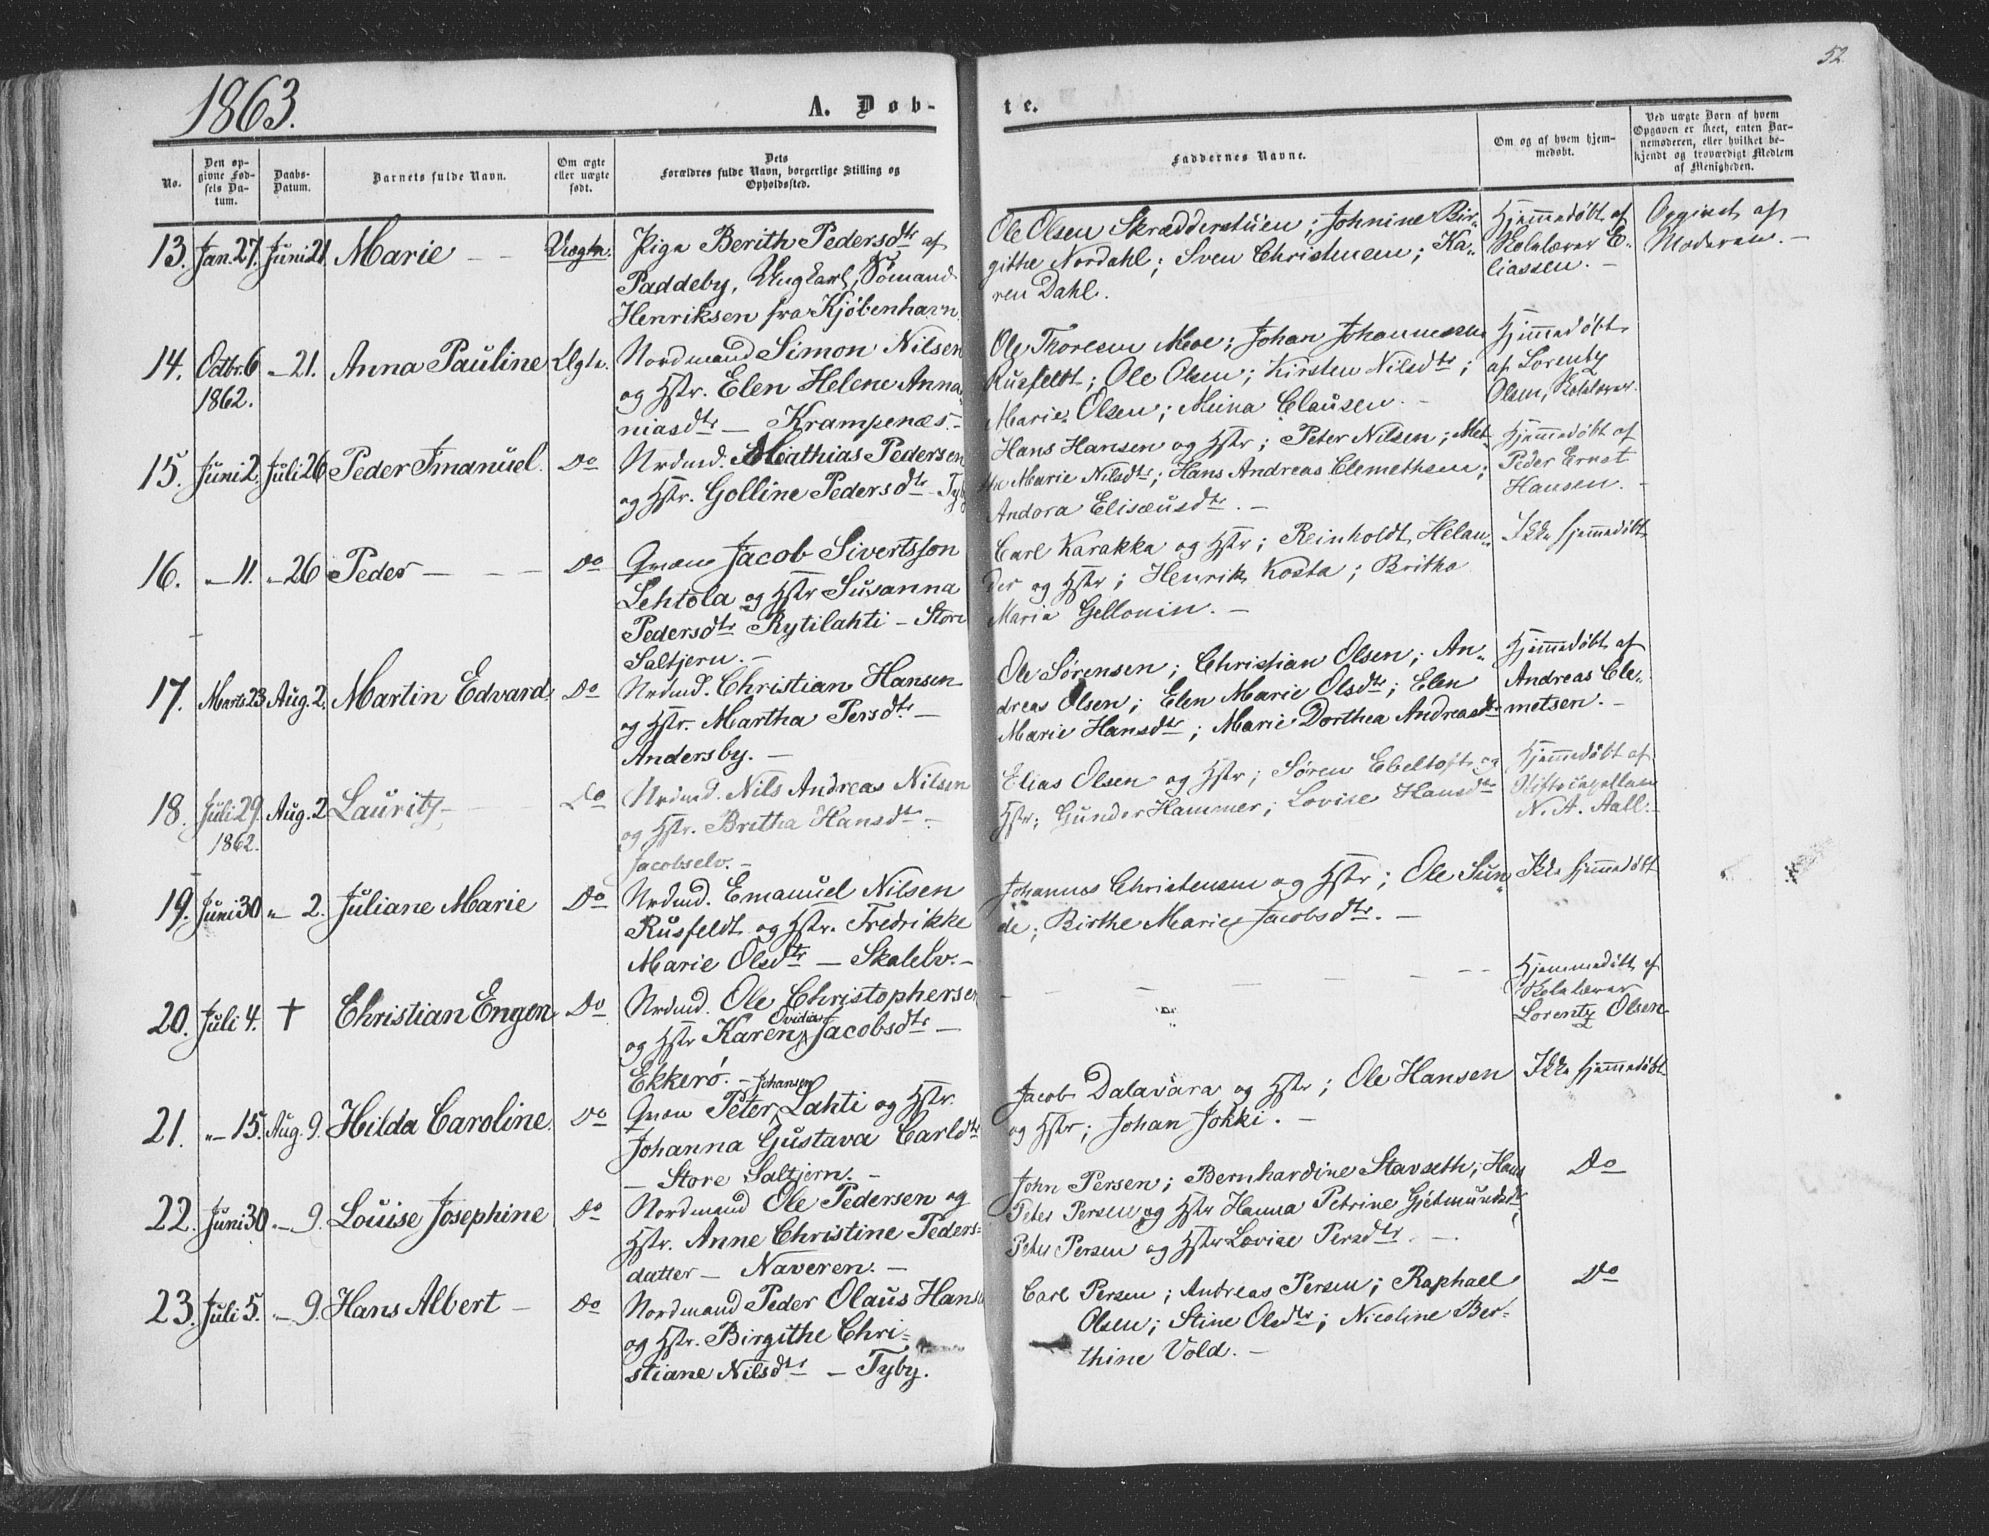 52
1863.
A. Døb-
te.
No.
Den op-
givne Fød-
sels Da-
tum.
Daabs-
Datum.
Barnets fulde Navn.
Om ægte
eller uægte
født.
Dets
Forældres fulde Navn, borgerlige Stilling og
Opholdssted.
Faddernes Navne.
Om og af hvem hjem-
medøbt.
Ved uægte Børn af hvem
Opgaven er skeet, enten Bar-
nemoderen, eller hvilket be-
kjendt og troværdigt Medlem
af Menigheden.
13. Jan. 27. Juni 21 Marie — — Uægte. Pige Berith Pedersdtr af
Paddeby, Ungkarl, Sømand
Henriksen fra Kjøbenhavn.
Ole Olsen Skrædderstuen; Johnine Bir-
githe Nordahl; Sven Christensen; Ka-
ren Dahl.
Hjemmedøbt af
Skolelærer E-
liassen. —
Opgivet af
Moderen. —
14. Octbr. 6 — 21. Anna Pauline Ægte. Nordmand Simon Nilsen
1862.
og Hstr. Elen Helene Anna
niasdtr — Krampenæs. —
Ole Thoresen Moe; Johan Johannesen
Rusfeldt; Ole Olsen; Kirsten Nilsdtr;
Marie Olsen; Meina Clausen. —
Hjemmedøbt
af Lorentz
Olsen, Skolelærer.
15. Juni 2. Juli 26 Peder Imanuel. Do Nrdmd. Mathias Pedersen
og Hstr. Golline Pedersdtr — Tyby
Hans Hansen og Hstr; Peter Nilsen; Met-
te Marie Nilsdtr; Hans Andreas Clemethsen;
Andora Elisæusdtr. —
Hjemmedøbt af
Peder Ernst
Hansen. —
16. — 11. — 26 Peder — — — Do Qvæn Jacob Sivertsson
Lehtola og Hstr Susanna
Pedersdtr Rytilahti — Store
Saltjern. —
Carl Karakka og Hstr; Reinholdt Helan-
der og Hstr; Henrik Kosta; Britha
Maria Gellonin. —
Ikke hjemmedøbt
17. Marts 23 Aug. 2. Martin Edvard Do Nrdmd. Christian Hansen
og Hstr. Martha Persdtr —
Andersby. —
Ole Sørensen; Christian Olsen; An-
dreas Olsen; Elen Marie Olsdtr; Elen
Marie Hansdtr; Marie Dorthea Andreasdtr
Hjemmedøbt af
Andreas Cle-
metsen. —
18. Juli 29. Aug. 2 Lauritz — Do Nrdmd. Nils Andreas Nilsen
1862.
og Hstr. Britha Hansdtr —
Jacobselv. —
Elias Olsen og Hstr; Søren Ebeltoft og
Hstr; Gunder Hammer; Lovise Hansdtr
Hjemmedøbt af
Stiftscapellan
N. A. Aall. —
19. Juni 30 " 2. Juliane Marie Do Nrdmd. Emanuel Nilsen
Rusfeldt og Hstr. Fredrikke
Marie Olsdtr — Skalelv. —
Johannes Christensen og Hstr; Ole Sun-
de; Birthe Marie Jacobsdtr. —
Ikke hjemmedøbt
20. Juli 4. † Christian Engen Do Nrdmd. Ole Christophersen
og Hstr Karen Ovidia Jacobsdtr —
Ekkerö. —
Hjemmedøbt af
Skolelærer
Lorentz Olsen
21. " 15. Aug. 9. Hilda Caroline. Do Qvæn Peter Johansen Lahti og Hstr.
Johanna Gustava Carlsdtr
— Store Saltjern. —
Jacob Dalavara og Hstr; Ole Hansen
og Hstr; Johan Jokki. —
Ikke hjemmedøbt
22. Juni 30 — 9. Louise Josephine Do Nordmand Ole Pedersen og
Hstr. Anne Christine Peders-
datter — Naveren. —
John Persen; Bernhardine Stavseth; Hans
Peter Persen og Hstr Hanna Petrine Gjetmundsdtr;
Peter Persen og Hstr Lovise Persdtr. —
Do
23. Juli 5. — 9. Hans Albert — Do Nordmand Peder Olaus Hansen
og Hstr. Birgithe Chri-
stiane Nilsdtr — Tyby.
Carl Persen; Andreas Persen; Raphael
Olsen; Stine Olsdtr; Nicoline Ber-
thine Vold. —
Do